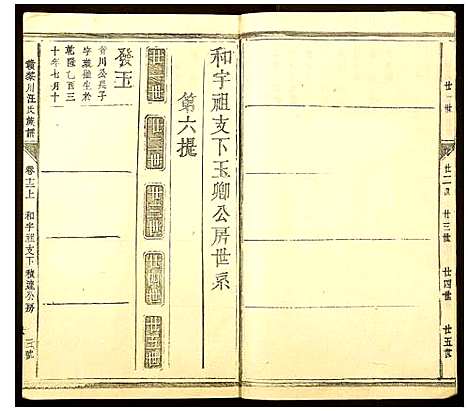 廿一世
廿二世
廿三世
廿四世
廿五世
和字祖支下玉卿公房世系
第六提
廿一世
廿二世
廿三世
廿四世
廿五世
發玉
川公長子
字
生於
乾隆乙酉三
十年七月十
川汪氏族譜
卷十三上
和字祖支下積達公房
三號